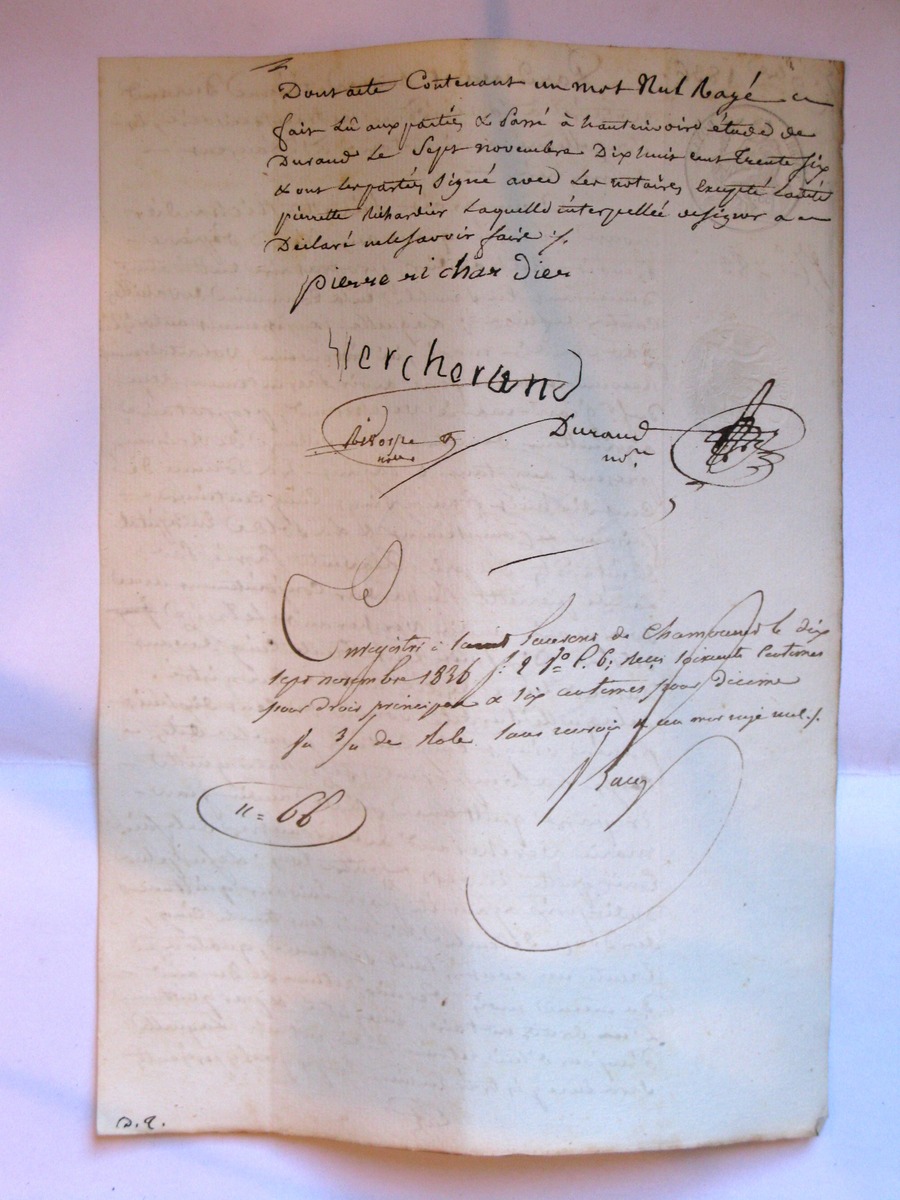 Dont acte Contenant un mot Nul Rayé
fait lû aux parties & Passé à hauterivoire étude de
Durand Le Sept novembre Dix huit cent Trente Six
& ont les parties Signé avec Les notaires excepté Ladite
pierrette Richardier Laquelle interpellée de signer a
Déclaré ne le savoir faire ./.
pierre richardier
Vercherand
notre
Durand
nore
Enregistré à Saint Laurent de Chamousset le dix
sept novembre 1836 fo 2 Ro C. 6, deux soixante centimes
pour droit principal & six centimes pour décime
de Role sans renvoi & un mot rayé nul ./.
11 = 66
D. R.